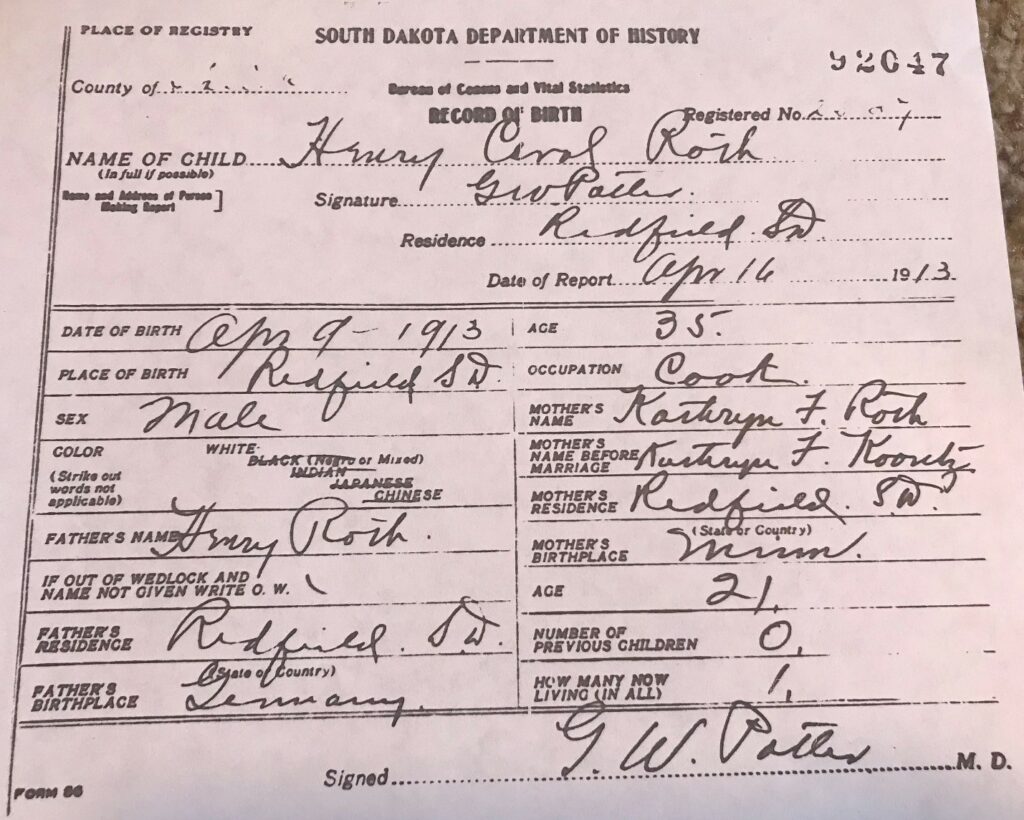 PLACE OF REGISTRY
SOUTH DAKOTA DEPARTMENT OF HISTORY
92047
County of
Bureau of Census and Vital Statistics
RECORD OF BIRTH
Registered No.
NAME OF CHILD Henry Carol Roth
(In full if possible)
Name and Address of Person Making Report ]
Signature G W Potter
Residence Redfield S.D.
Date of Report Apr 16 1913
DATE OF BIRTH Apr 9 - 1913
AGE 35.
PLACE OF BIRTH Redfield S.D.
OCCUPATION Cook.
SEX Male
MOTHER'S NAME Kathryn F. Roth
COLOR
(Strike out words not applicable)
WHITE
BLACK (Negro or Mixed)
INDIAN
JAPANESE
CHINESE
MOTHER'S NAME BEFORE MARRIAGE Kathryn F.
MOTHER'S RESIDENCE Redfield. S.D.
FATHER'S NAME Henry Roth.
(State or Country)
MOTHER'S BIRTHPLACE Minn.
IF OUT OF WEDLOCK AND NAME NOT GIVEN WRITE O. W. \
AGE 21.
FATHER'S RESIDENCE Redfield. S.D.
NUMBER OF PREVIOUS CHILDREN 0.
(State of Country)
FATHER'S BIRTHPLACE Germany.
HOW MANY NOW LIVING (IN ALL) 1.
Signed G. W. Potter M. D.
FORM 86